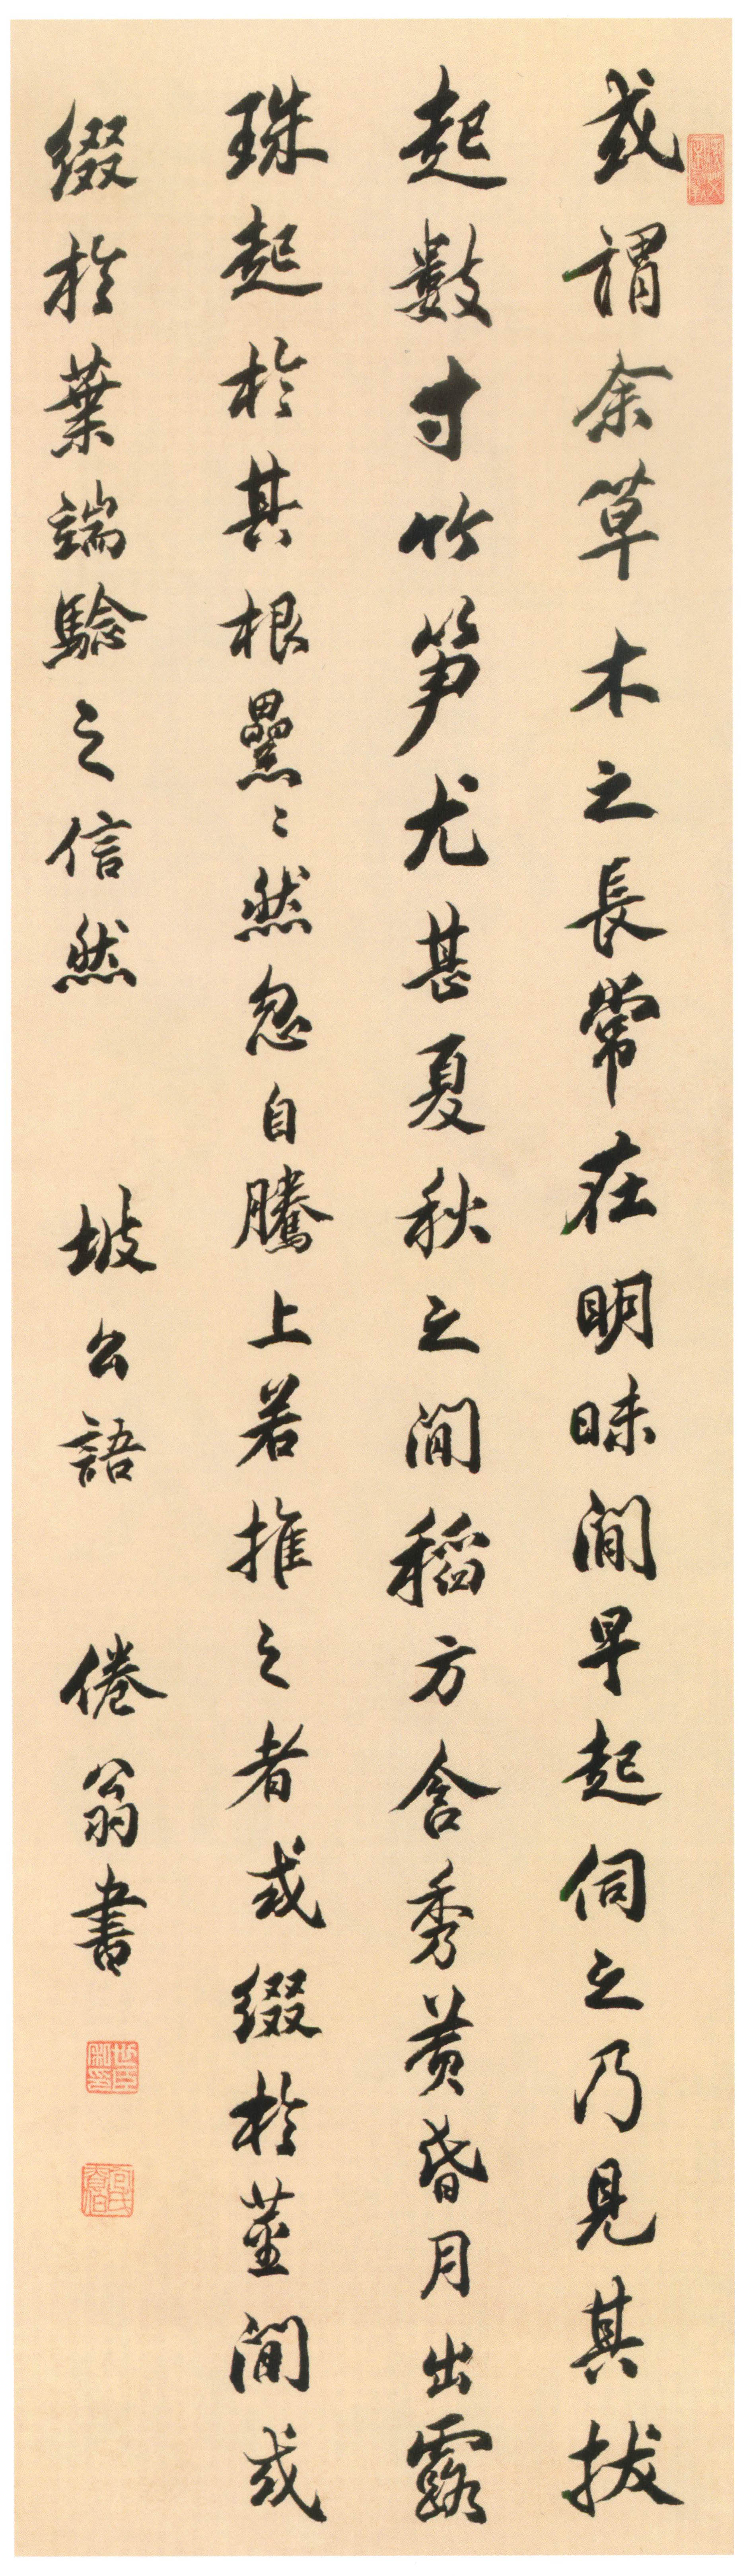 或謂余草木之長常在明昧間早起伺之乃見其拔
起數寸竹笋尤甚夏秋之間稻方含秀黃昏月出露
珠起於其根纍〻然忽自騰上若推之者或綴於莖間或
綴於葉端驗之信然
坡公語
倦翁書